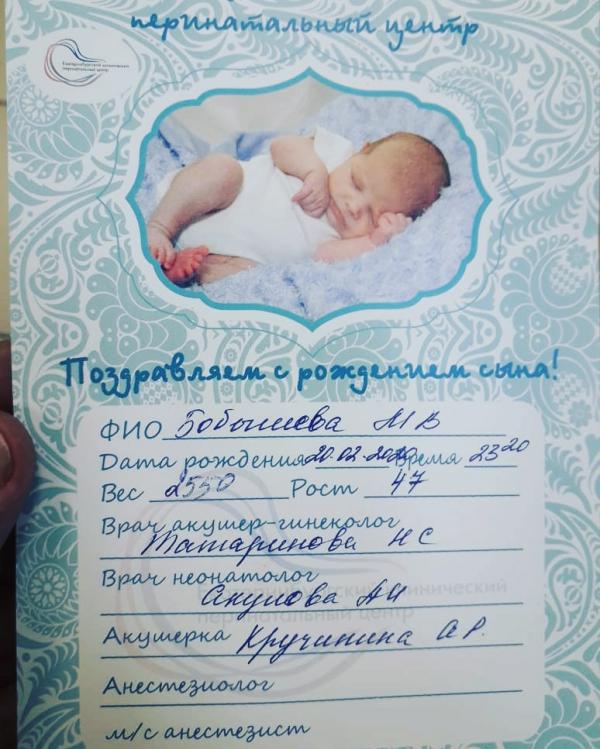 перинатальный центр
Екатеринбургский клинический
перинатальный центр
Поздравляем с рождением сына!
ФИО Бобышева М В
Дата рождения 20.02.2020 Время 23 20
Вес 2550 Рост 47
Врач акушер-гинеколог
Татаринова Н С
Врач неонатолог
Акулова АИ
Екатеринбургский клинический
перинатальный центр
Акушерка Кручинина А.Р.
Анестезиолог
м/с анестезист